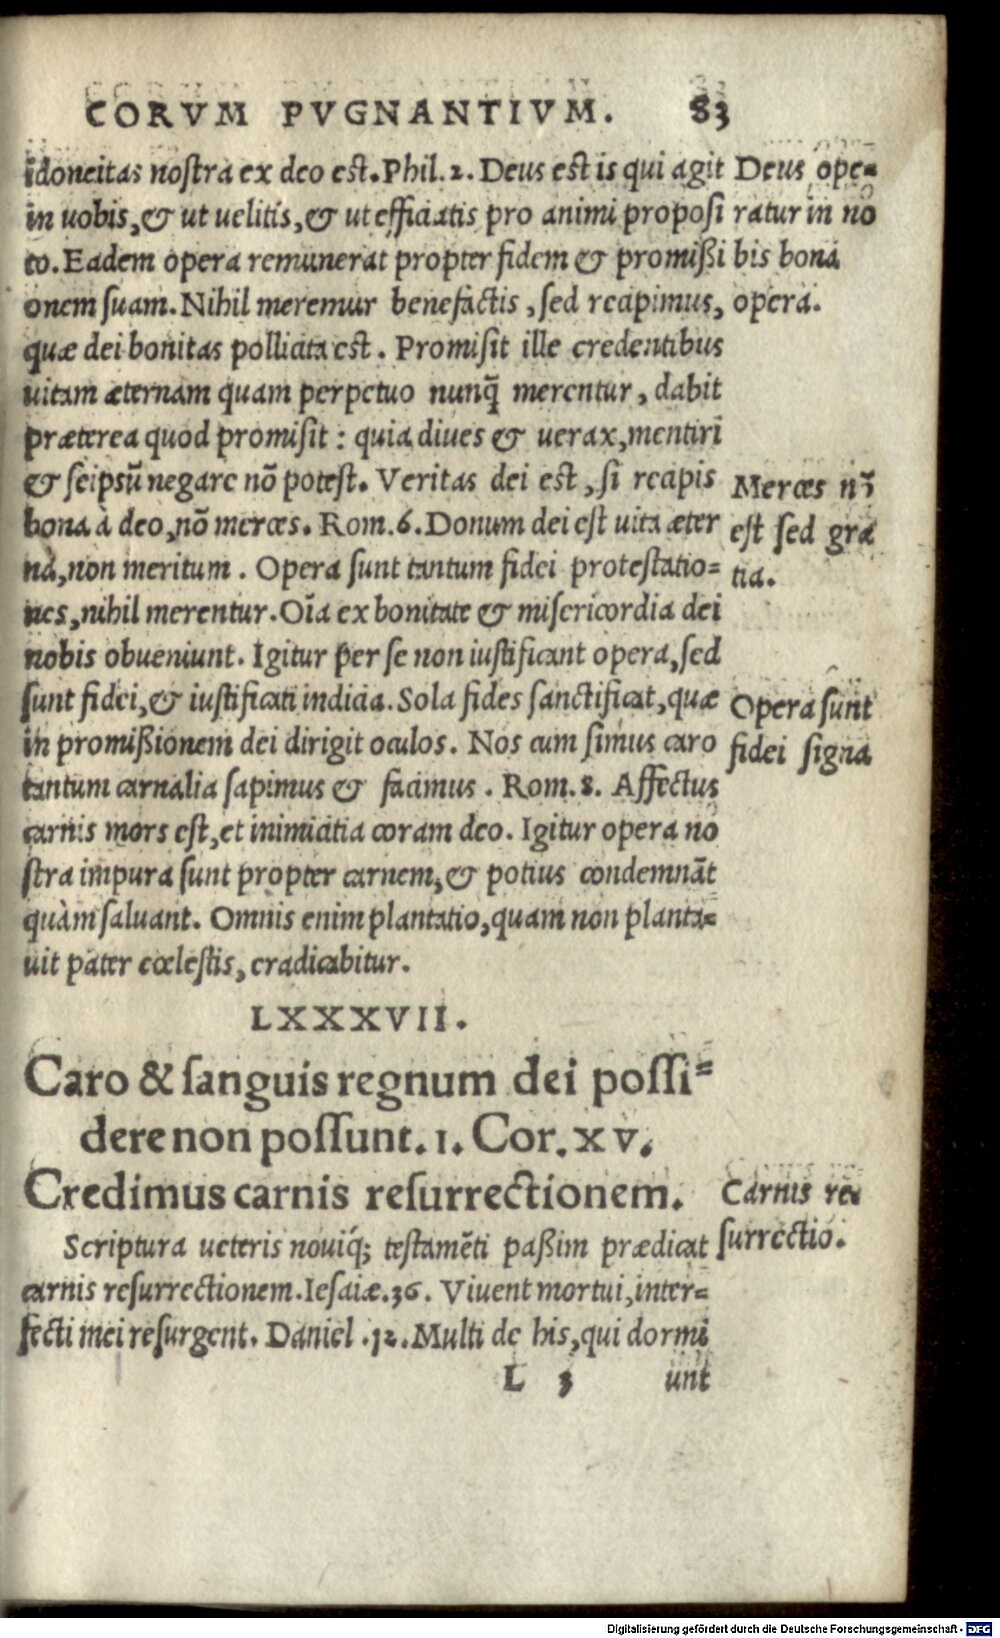 CORVM PVGNANTIVM. 83
idoneitas nostra ex deo est. Phil. 2. Deus est is qui agit
in uobis, & ut uelitis, & ut efficiatis pro animi proposi
to. Eadem opera remunerat propter fidem & promißi
onem suam. Nihil meremur benefactis, sed recipimus,
quæ dei bonitas pollicita est. Promisit ille credentibus
uitam æternam quam perpetuo nunq̃ merentur, dabit
præterea quod promisit: quia diues & uerax, mentiri
& seipsũ negare nõ potest. Veritas dei est, si recipis
bona à deo, nõ merces. Rom. 6. Donum dei est uita æter
na, non meritum. Opera sunt tantum fidei protestatio=
nes, nihil merentur. Oĩa ex bonitate & misericordia dei
nobis obueniunt. Igitur per se non iustificant opera, sed
sunt fidei, & iustificati indicia. Sola fides sanctificat, quæ
in promißionem dei dirigit oculos. Nos cum simus caro
tantum carnalia sapimus & facimus. Rom. 8. Affectus
carnis mors est, et inimicitia coram deo. Igitur opera no
stra impura sunt propter carnem, & potius condemnãt
quàm saluant. Omnis enim plantatio, quam non planta=
uit pater cœlestis, eradicabitur.
Deus ope=
ratur in no
bis bona
opera.
Merces nõ
est sed gra
tia.
Opera sunt
fidei signa
LXXXVII.
Caro & sanguis regnum dei possi=
dere non possunt. 1. Cor. XV.
Credimus carnis resurrectionem.
Scriptura ueteris nouiq́; testamẽti paßim prædicat
carnis resurrectionem. Iesaiæ. 36. Viuent mortui, inter=
fecti mei resurgent. Daniel. 12. Multi de his, qui dormi
Carnis re
surrectio.
L 3 unt
Digitalisierung gefördert durch die Deutsche Forschungsgemeinschaft - DFG